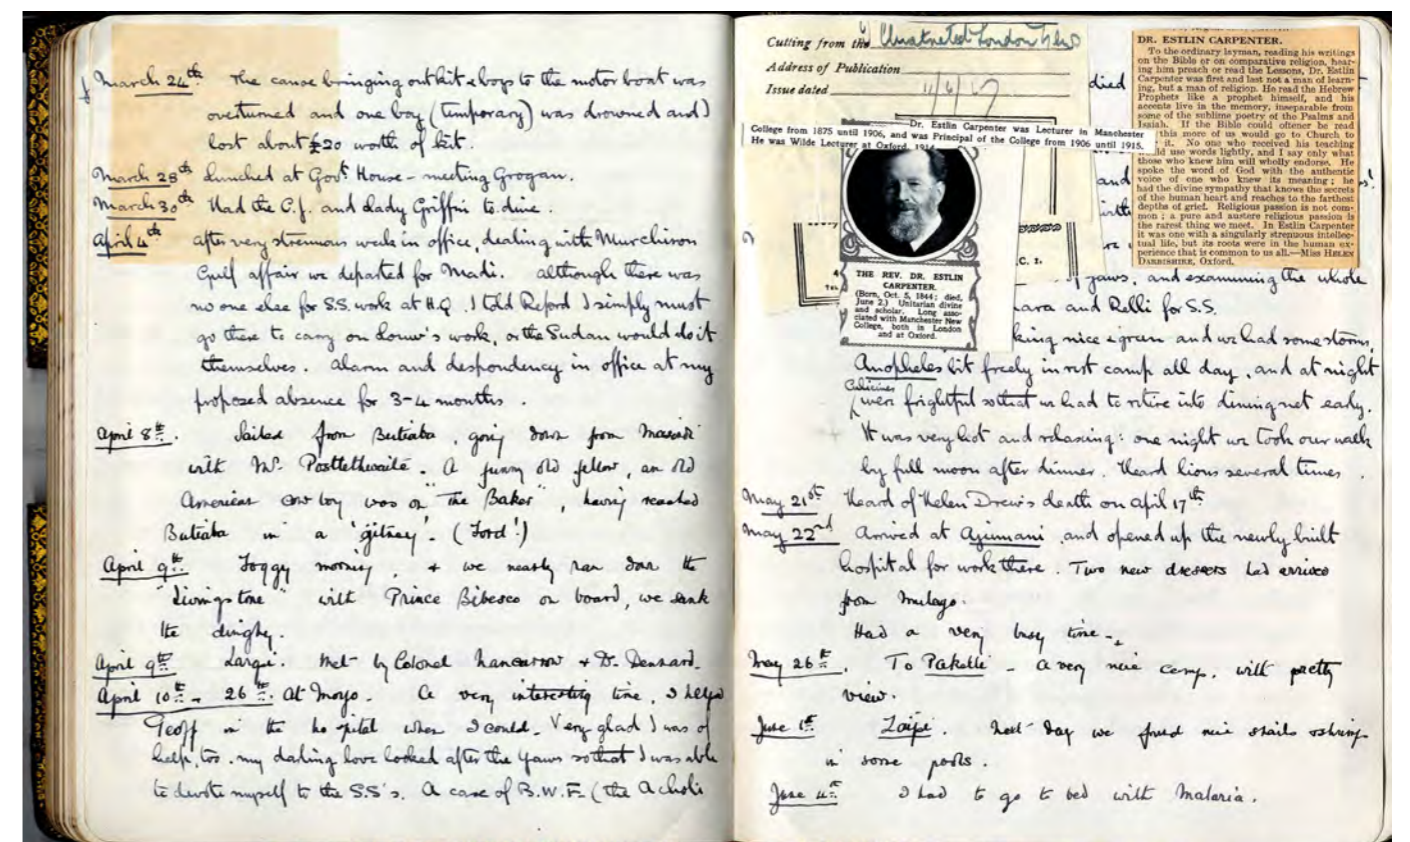 March 24th The canoe bringing out kit & boys to the motor boat was
overturned and one boy (temporary) was drowned and I
lost about £20 worth of kit.
March 28th Lunched at Govt. House - meeting Grogan.
March 30th Had the C.J. and Lady Griffin to dine.
April 4th After very strenuous week in office, dealing with Murchison
Gulf affair we departed for Madi. Although there was
no one else for S.S. work at H.Q. I told Reford I simply must
go there to carry on Louw's work, or the Sudan would do it
themselves. Alarm and despondency in office at my
proposed absence for 3-4 months.
April 8th. Sailed from Butiaba, going down from Masindi
with Mr. Postlethwaite. A funny old fellow, an old
American cow boy was on "The Baker", having reached
Butiaba in a 'gitney'. (Ford!)
April 9th. Foggy morning, & we nearly ran down the
"Livingstone" with Prince Bibesco on board, we sank
the dinghy.
April 9th Laropi. Met by Colonel & Dr. Dennard.
April 10th - 26th. At Moyo. A very interesting time. I helped
Geoff in the hospital when I could. Very glad I was of
help, too. My darling love looked after the yaws so that I was able
to devote myself to the S.S's. A case of B.W.F. (the Acholi
Cutting from the Illustrated London News
Address of Publication
Issue dated
College from 1875 until 1906, and was Principal of the College from 1906 until 1915.
Dr. Estlin Carpenter was Lecturer in Manchester
He was Wilde Lecturer at Oxford, 1914
THE REV. DR. ESTLIN
CARPENTER.
(Born, Oct. 5, 1844; died,
June 2.) Unitarian divine
and scholar. Long asso-
ciated with Manchester New
College, both in London
and at Oxford.
C. 1.
DR. ESTLIN CARPENTER.
To the ordinary layman, reading his writings
on the Bible or on comparative religion, hear-
ing him preach or read the Lessons, Dr. Estlin
Carpenter was first and last not a man of learn-
ing, but a man of religion. He read the Hebrew
Prophets like a prophet himself, and his
accents live in the memory, inseparable from
some of the sublime poetry of the Psalms and
Isaiah. If the Bible could oftener be read
this more of us would go to Church to
it. No one who received his teaching
use words lightly, and I say only what
those who knew him will wholly endorse. He
spoke the word of God with the authentic
voice of one who knew its meaning; he
had the divine sympathy that knows the secrets
of the human heart and reaches to the farthest
depths of grief. Religious passion is not com-
mon; a pure and austere religious passion is
the rarest thing we meet. In Estlin Carpenter
it was one with a singularly strenuous intellec-
tual life, but its roots were in the human ex-
perience that is common to us all.—Miss HELEN
DARBISHIRE, Oxford.
died
and
of yaws, and examining the whole
and Relli for S.S.
nice & green and we had some storms.
Anopheles bit freely in rest camp all day, and at night
Culicines
were frightful so that we had to retire into dining net early.
It was very hot and relaxing: one night we took our walk
by full moon after dinner. Heard lions several times.
May 21st Heard of Helen Drew's death on April 17th.
May 22nd Arrived at Ajumani, and opened up the newly built
hospital for work there. Two new dressers had arrived
from Mulago.
Had a very busy time.
May 26th. To Pakelle - A very nice camp, with pretty
view.
June 1st Zaipi. Next day we found nice snails
in some pools.
June 4th I had to go to bed with Malaria.